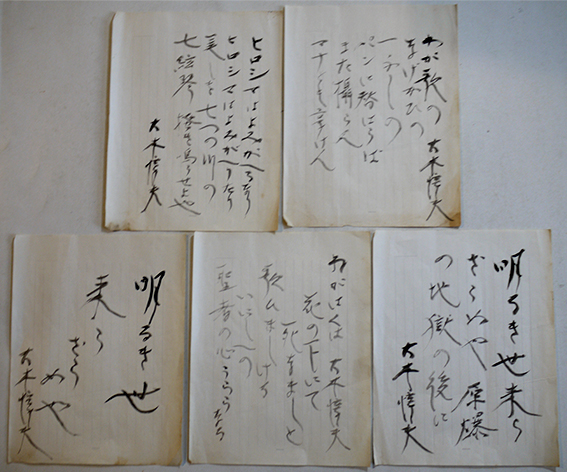 わが歌の
なげかひの 大木惇夫
一ふしの
パンに替はらば
また
ヒロシマはよみがへるなり
ヒロシマはよみがへりたり
美しき七つの川の
七絃琴 鳴らせよや
大木惇夫
明るき世来ら
ざらめや 原爆
の地獄の後に
大木惇夫
ねがはくは 大木惇夫
花の下にて
死なましと
歌ひましける
いにしへの
聖者の心
明るき世
来ら
ざら
めや
大木惇夫